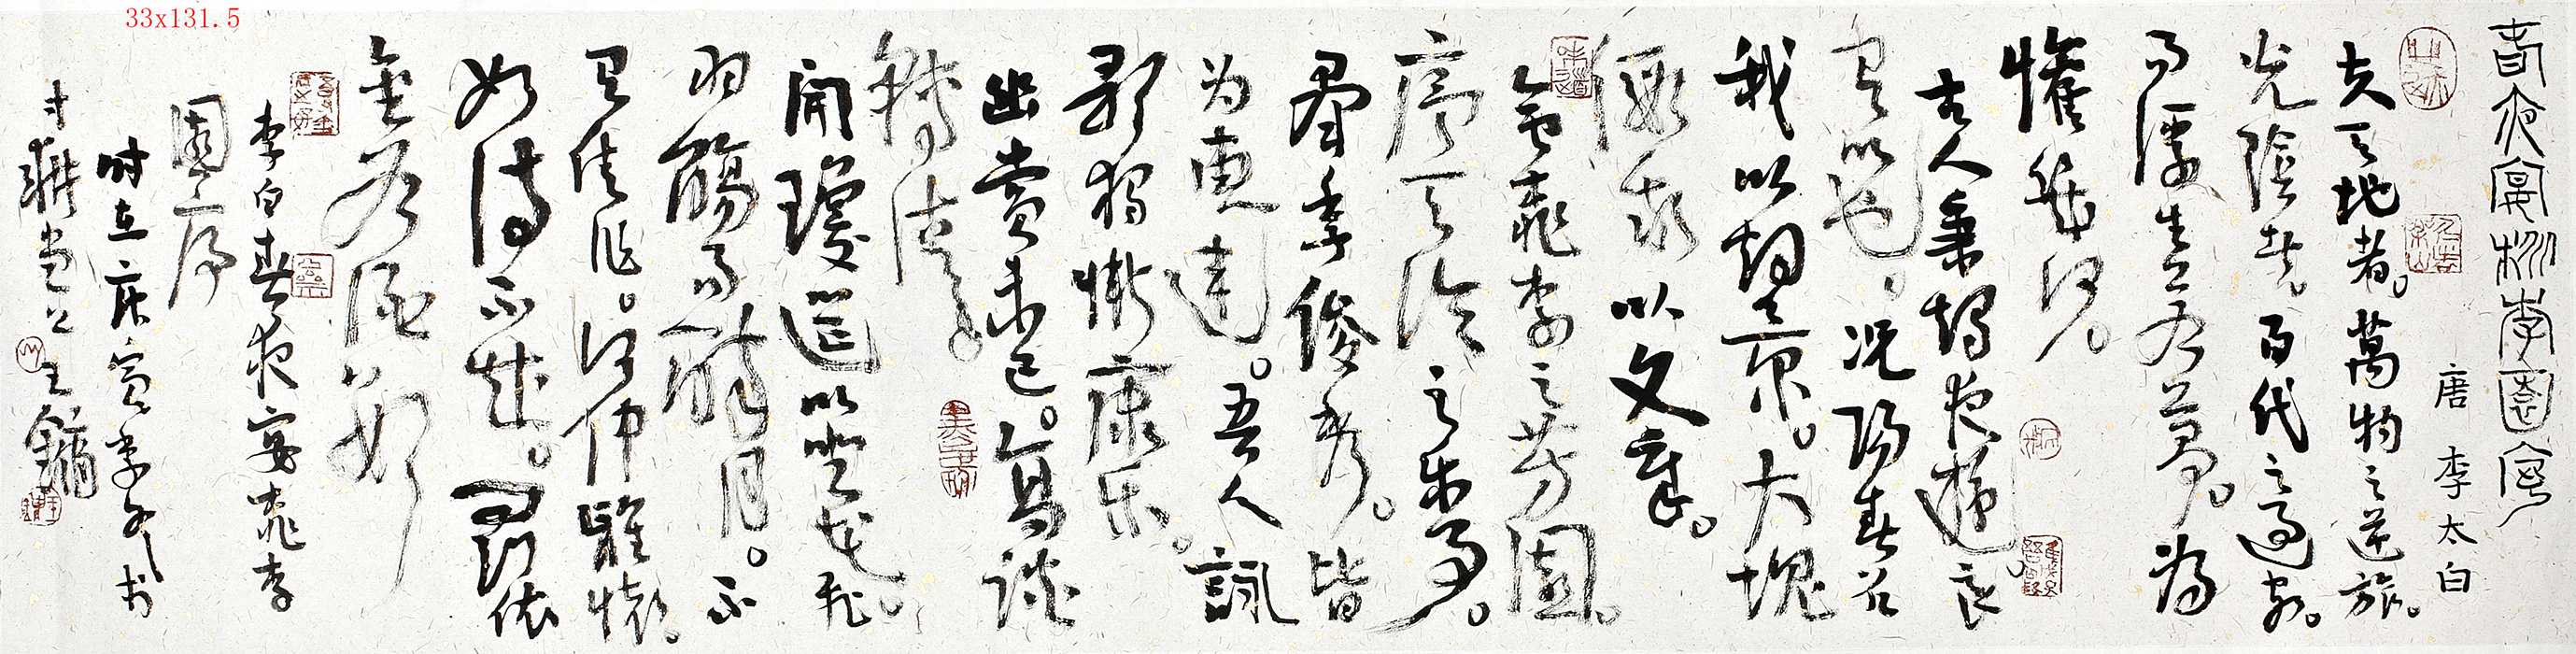 33x131.5
春夜宴桃李園序
唐 李太白
夫天地者。萬物之逆旅。
光陰者。百代之過客。
而浮生若夢。為
懽幾何。
古人秉燭夜遊。良
有以也。况陽春召
我以煙景。大塊
假我以文章。
會桃李之芳園。
序天倫之樂事。
羣季俊秀。皆
为惠連。吾人詠
歌獨慚康乐。
幽賞未已。高談
轉清。
開瓊筵以坐花。飛
羽觴而醉月。不
有佳作。何伸雅懷。
如詩不成。罰依
金谷酒數
李白春夜宴桃李
園序
时在庚寅
王鏞